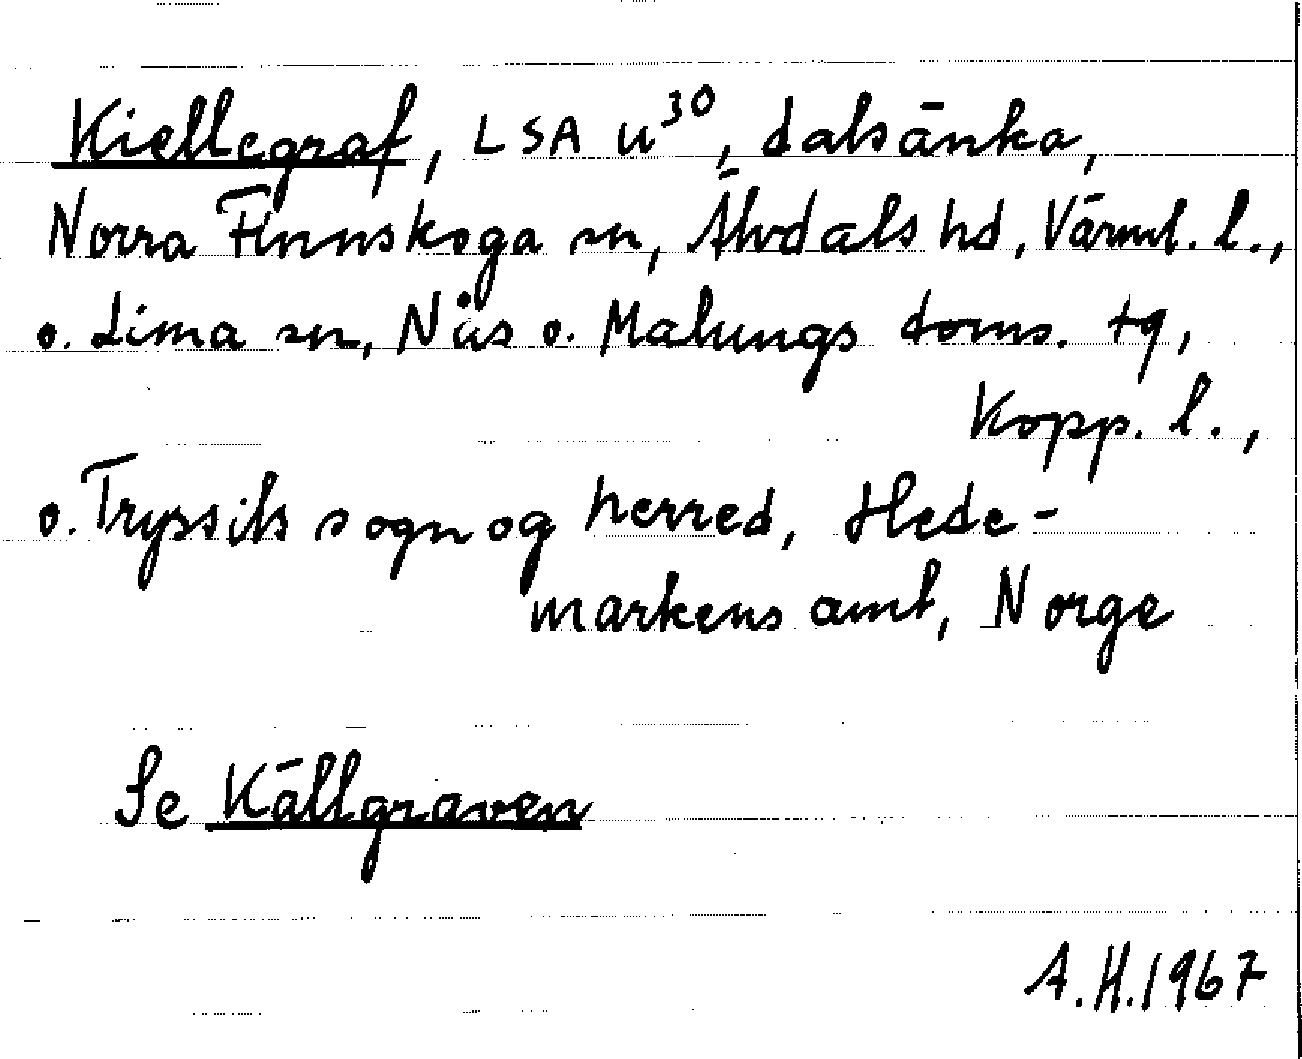 Kiellegraf, LSA u30, dalsänka,
Norra Finnskoga sn, Älvdals hd, Värml. l.,
o. Lima sn, Nås o. Malungs doms. tg,
Kopp. l.,
o. Tryssils sogn og herred, Hede-
markens amt, Norge
Se Källgraven
A.H.1967